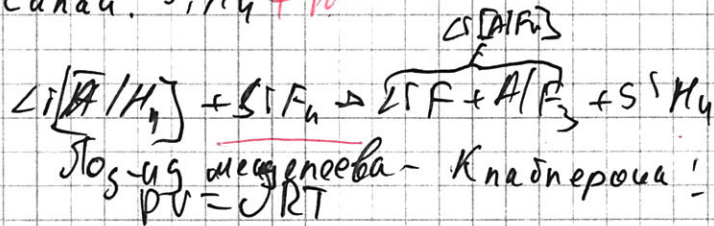 силан. SiH4
Li[AlF4]
Li[AlH4] + SiF4 → LiF + AlF3 + SiH4
менделеева - Клапперона!
pV = νRT